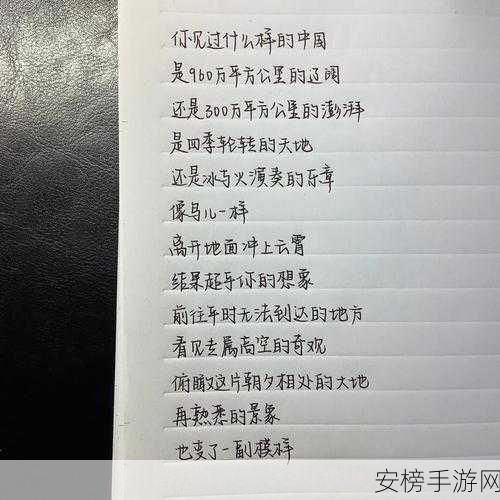 你见过什么样的中国
是960万平方公里的辽阔
还是300万平方公里的澎湃
是四季轮转的天地
还是冰与火演奏的乐章
像鸟儿一样
离开地面冲上云霄
结果超乎你的想象
前往平时无法到达的地方
看见专属高空的奇观
俯瞰这片朝夕相处的大地
再熟悉的景象
也变了一副模样
安榜手游网